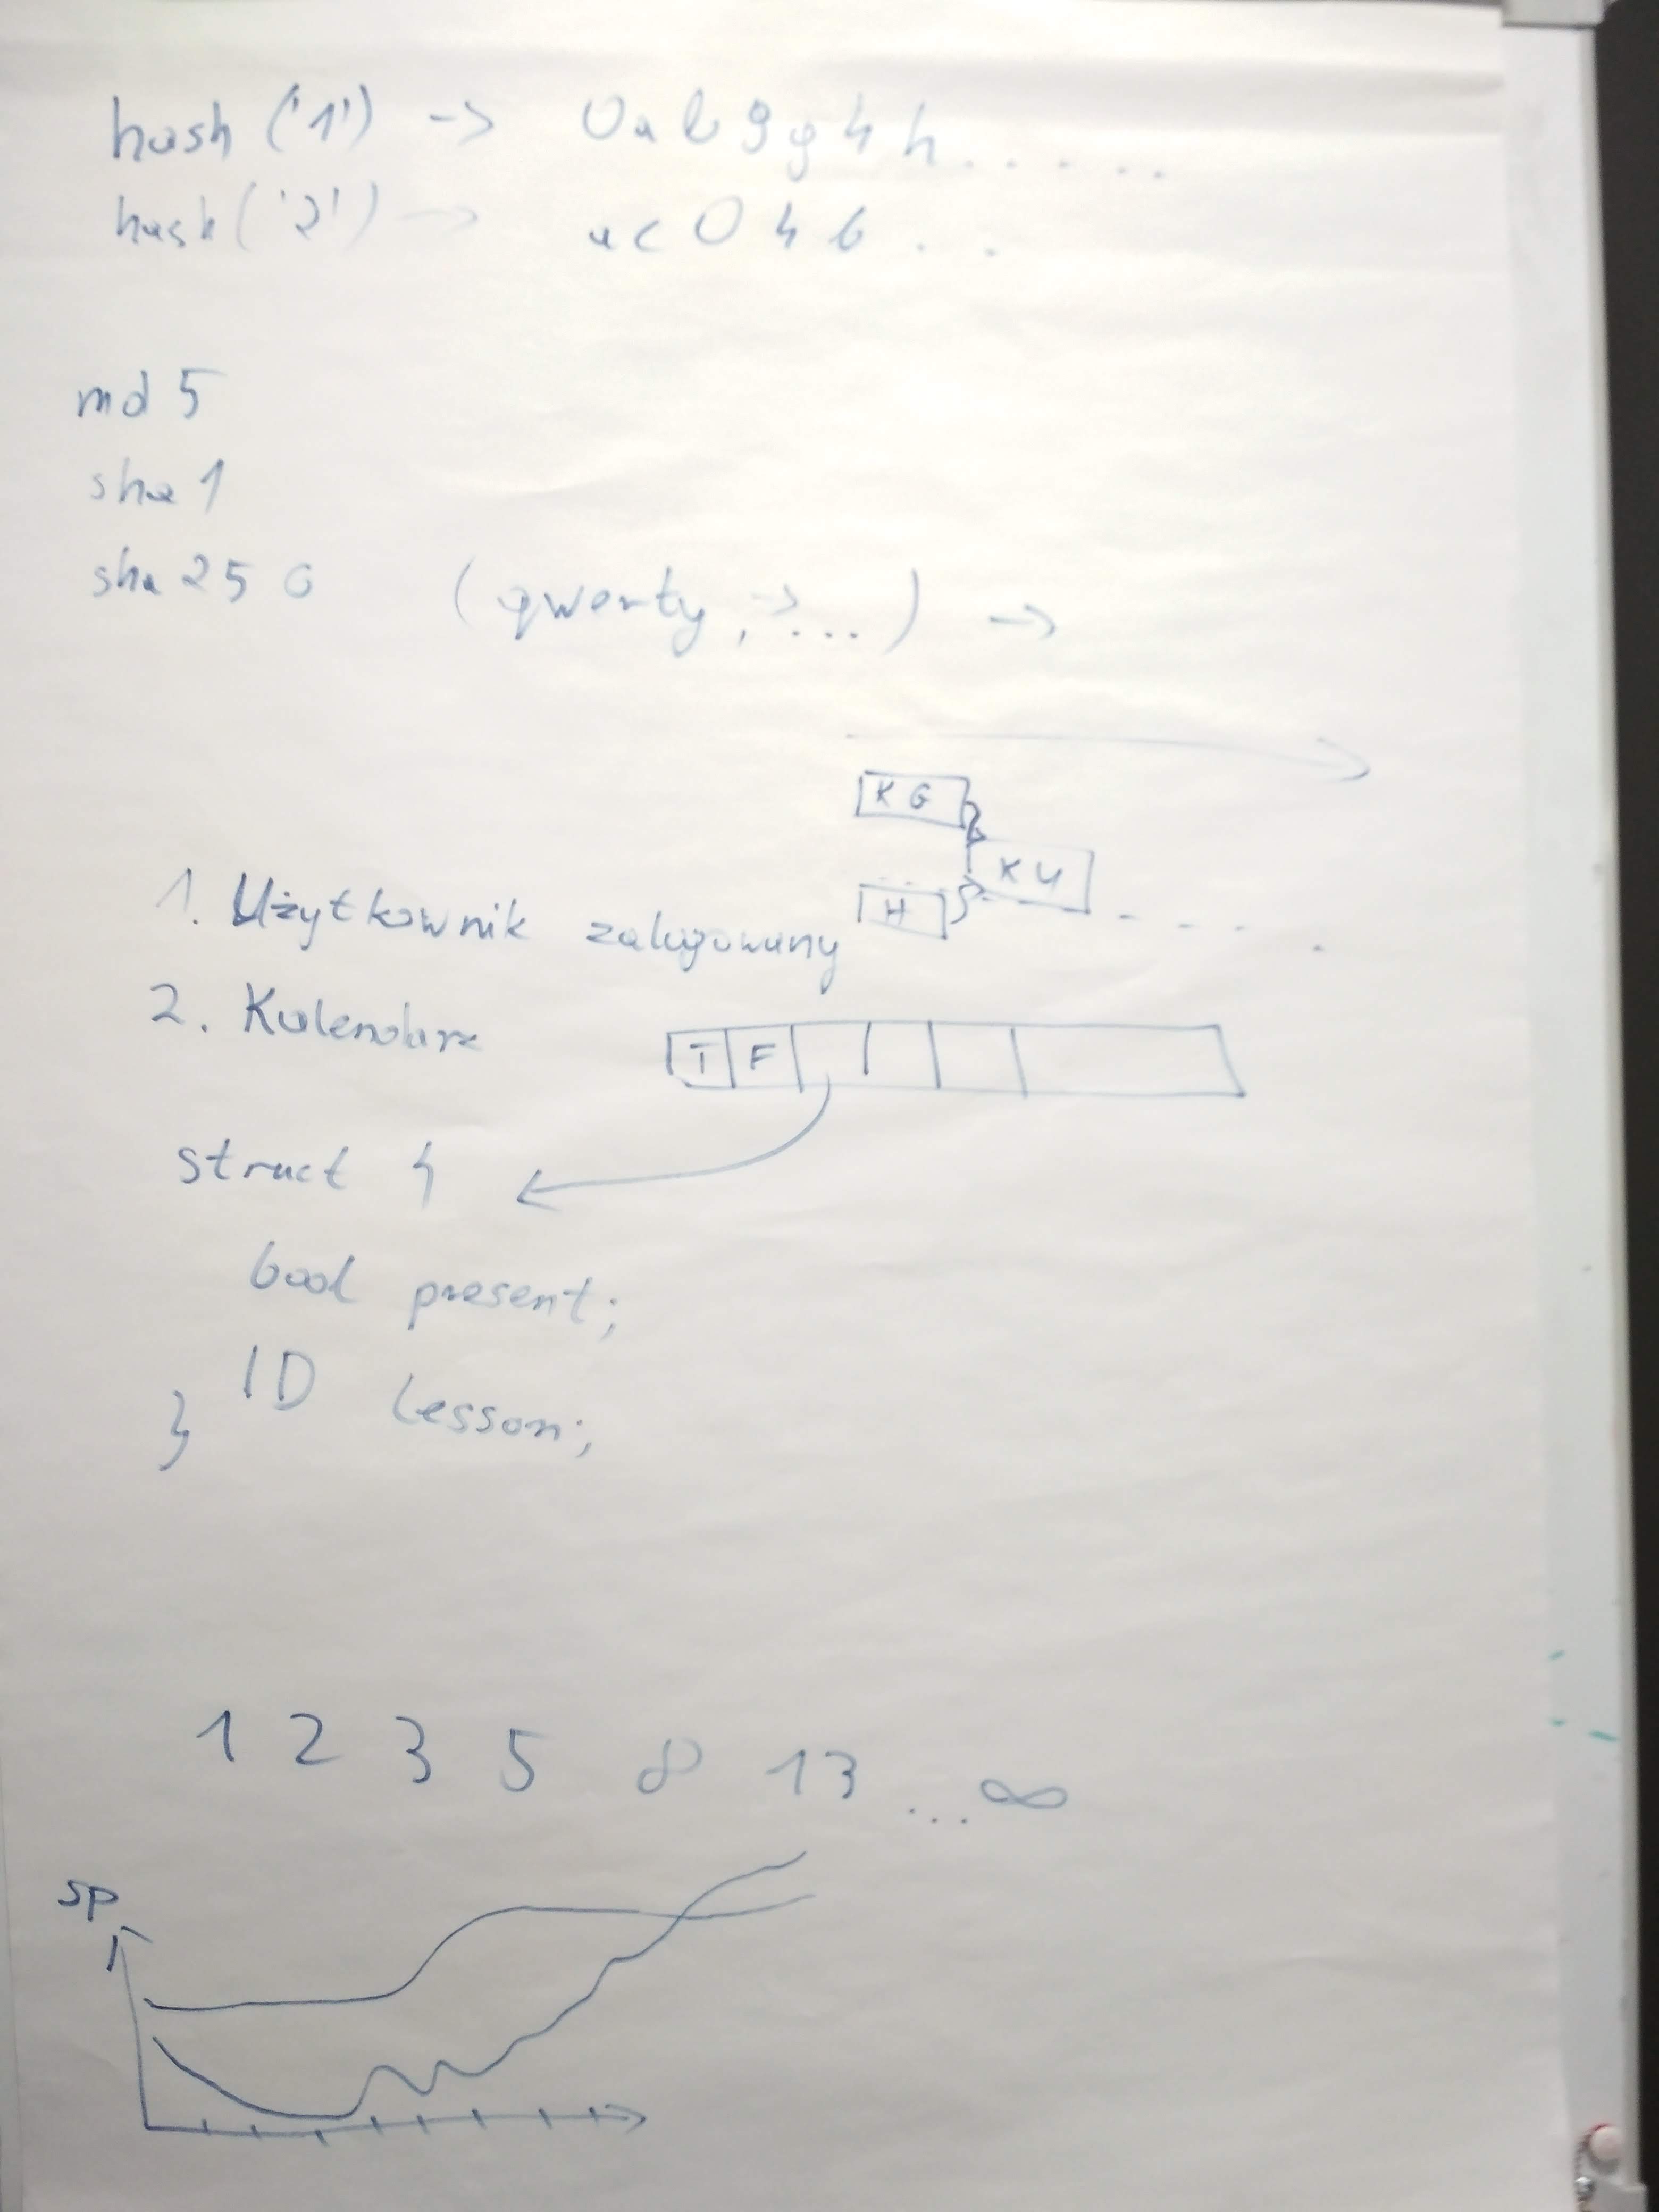 hash ('1') -> 0ab9g4h.....
hash ('2') -> ac046...
md5
sha1
sha256
(qwerty, ->...) ->
KG
KU
H
1. Użytkownik zalogowany
2. Kalendarz
T F
struct {
bool present;
ID Lesson;
}
1 2 3 5 8 13 ... ∞
SP